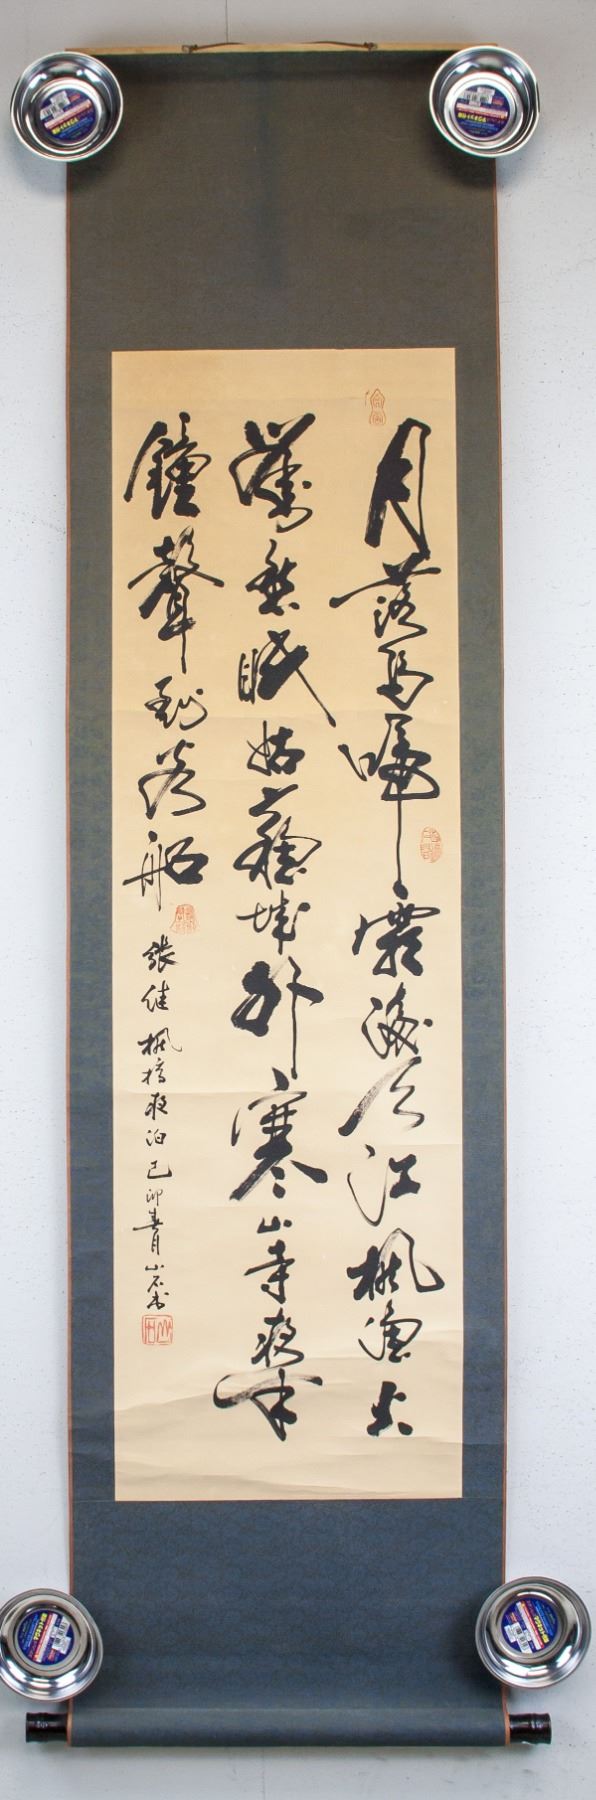 月落烏啼霜滿天江楓漁火
對愁眠姑蘇城外寒山寺夜半
鐘聲到客船
張继楓橋夜泊己卯春月山石书